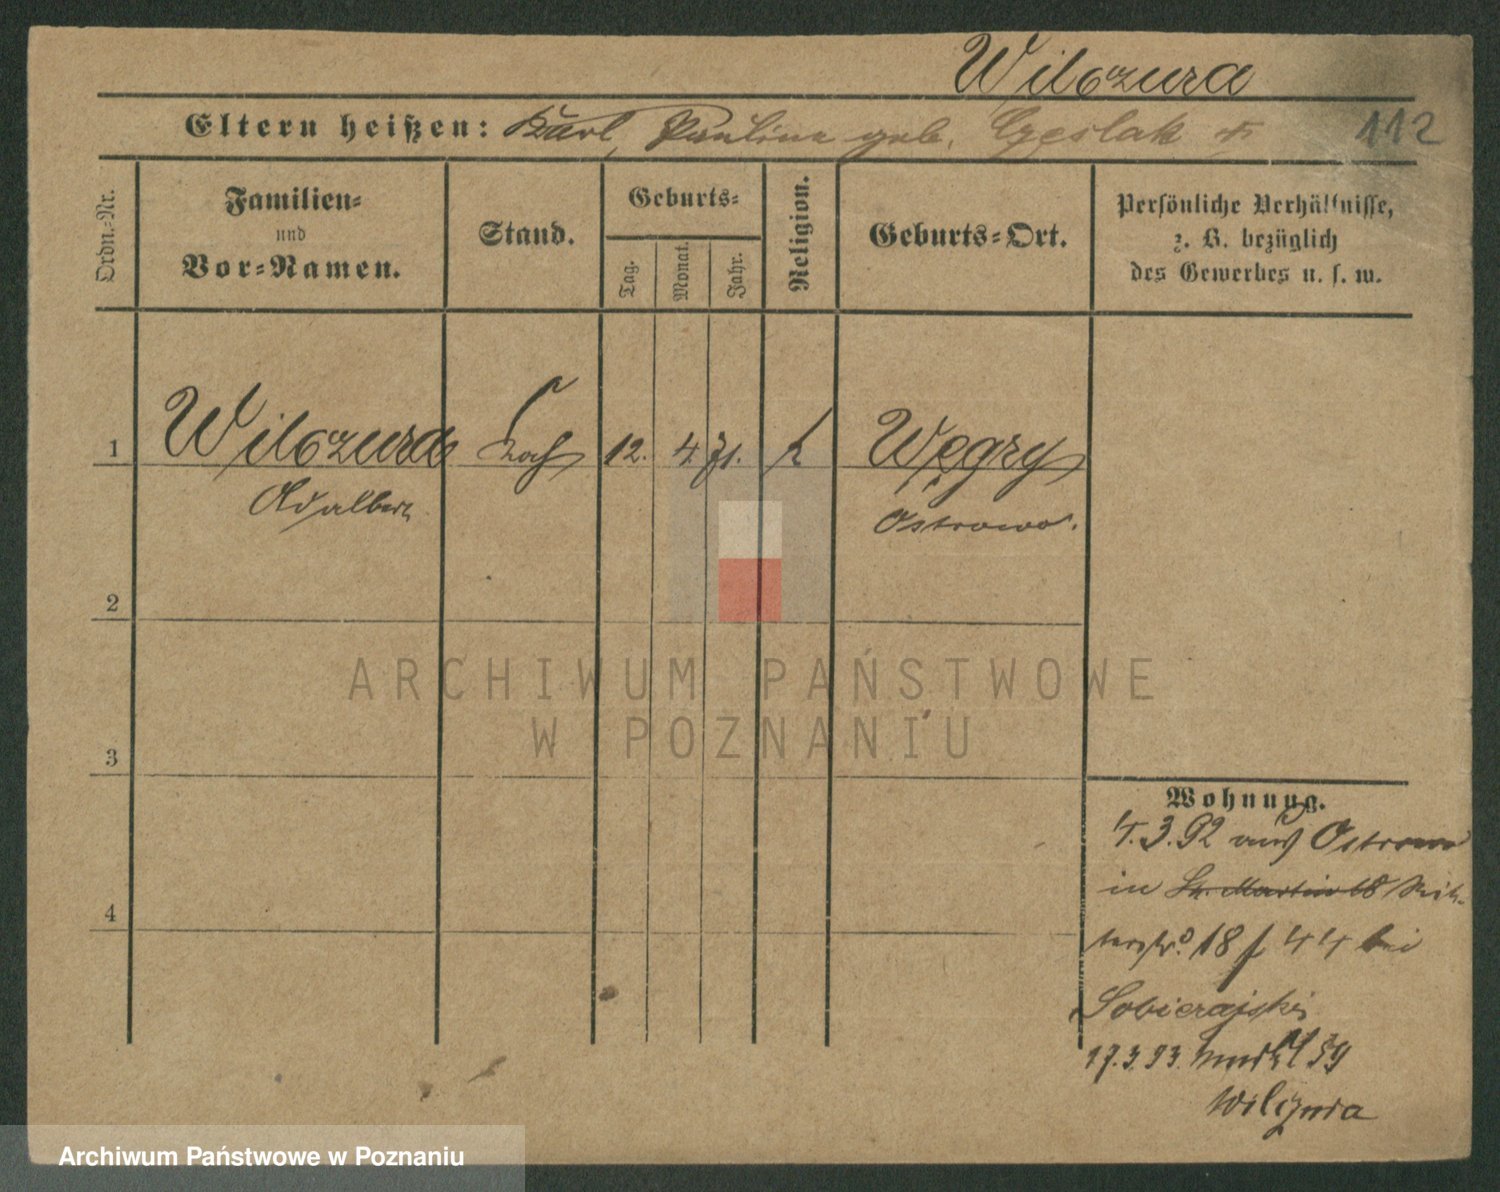 Wilczura
Eltern heißen: Karl, Paulina geb. Czeslak
112
Ordn.-Nr.
Familien-
und
Vor-Namen.
Stand.
Geburts-
Tag.
Monat.
Jahr.
Religion.
Geburts-Ort.
Persönliche Verhältnisse,
z. B. bezüglich
des Gewerbes u. s. w.
1 Wilczura Koch 12. 4. 71. k Węgry
Adalbert Ostrowo.
2
3
4
Wohnung.
4.3.92 aus Ostrowo
in St. Martin 68
18 44 bei
Sobierajski
17.3.93. 59
Wilczura
ARCHIWUM PAŃSTWOWE
W POZNANIU
Archiwum Państwowe w Poznaniu